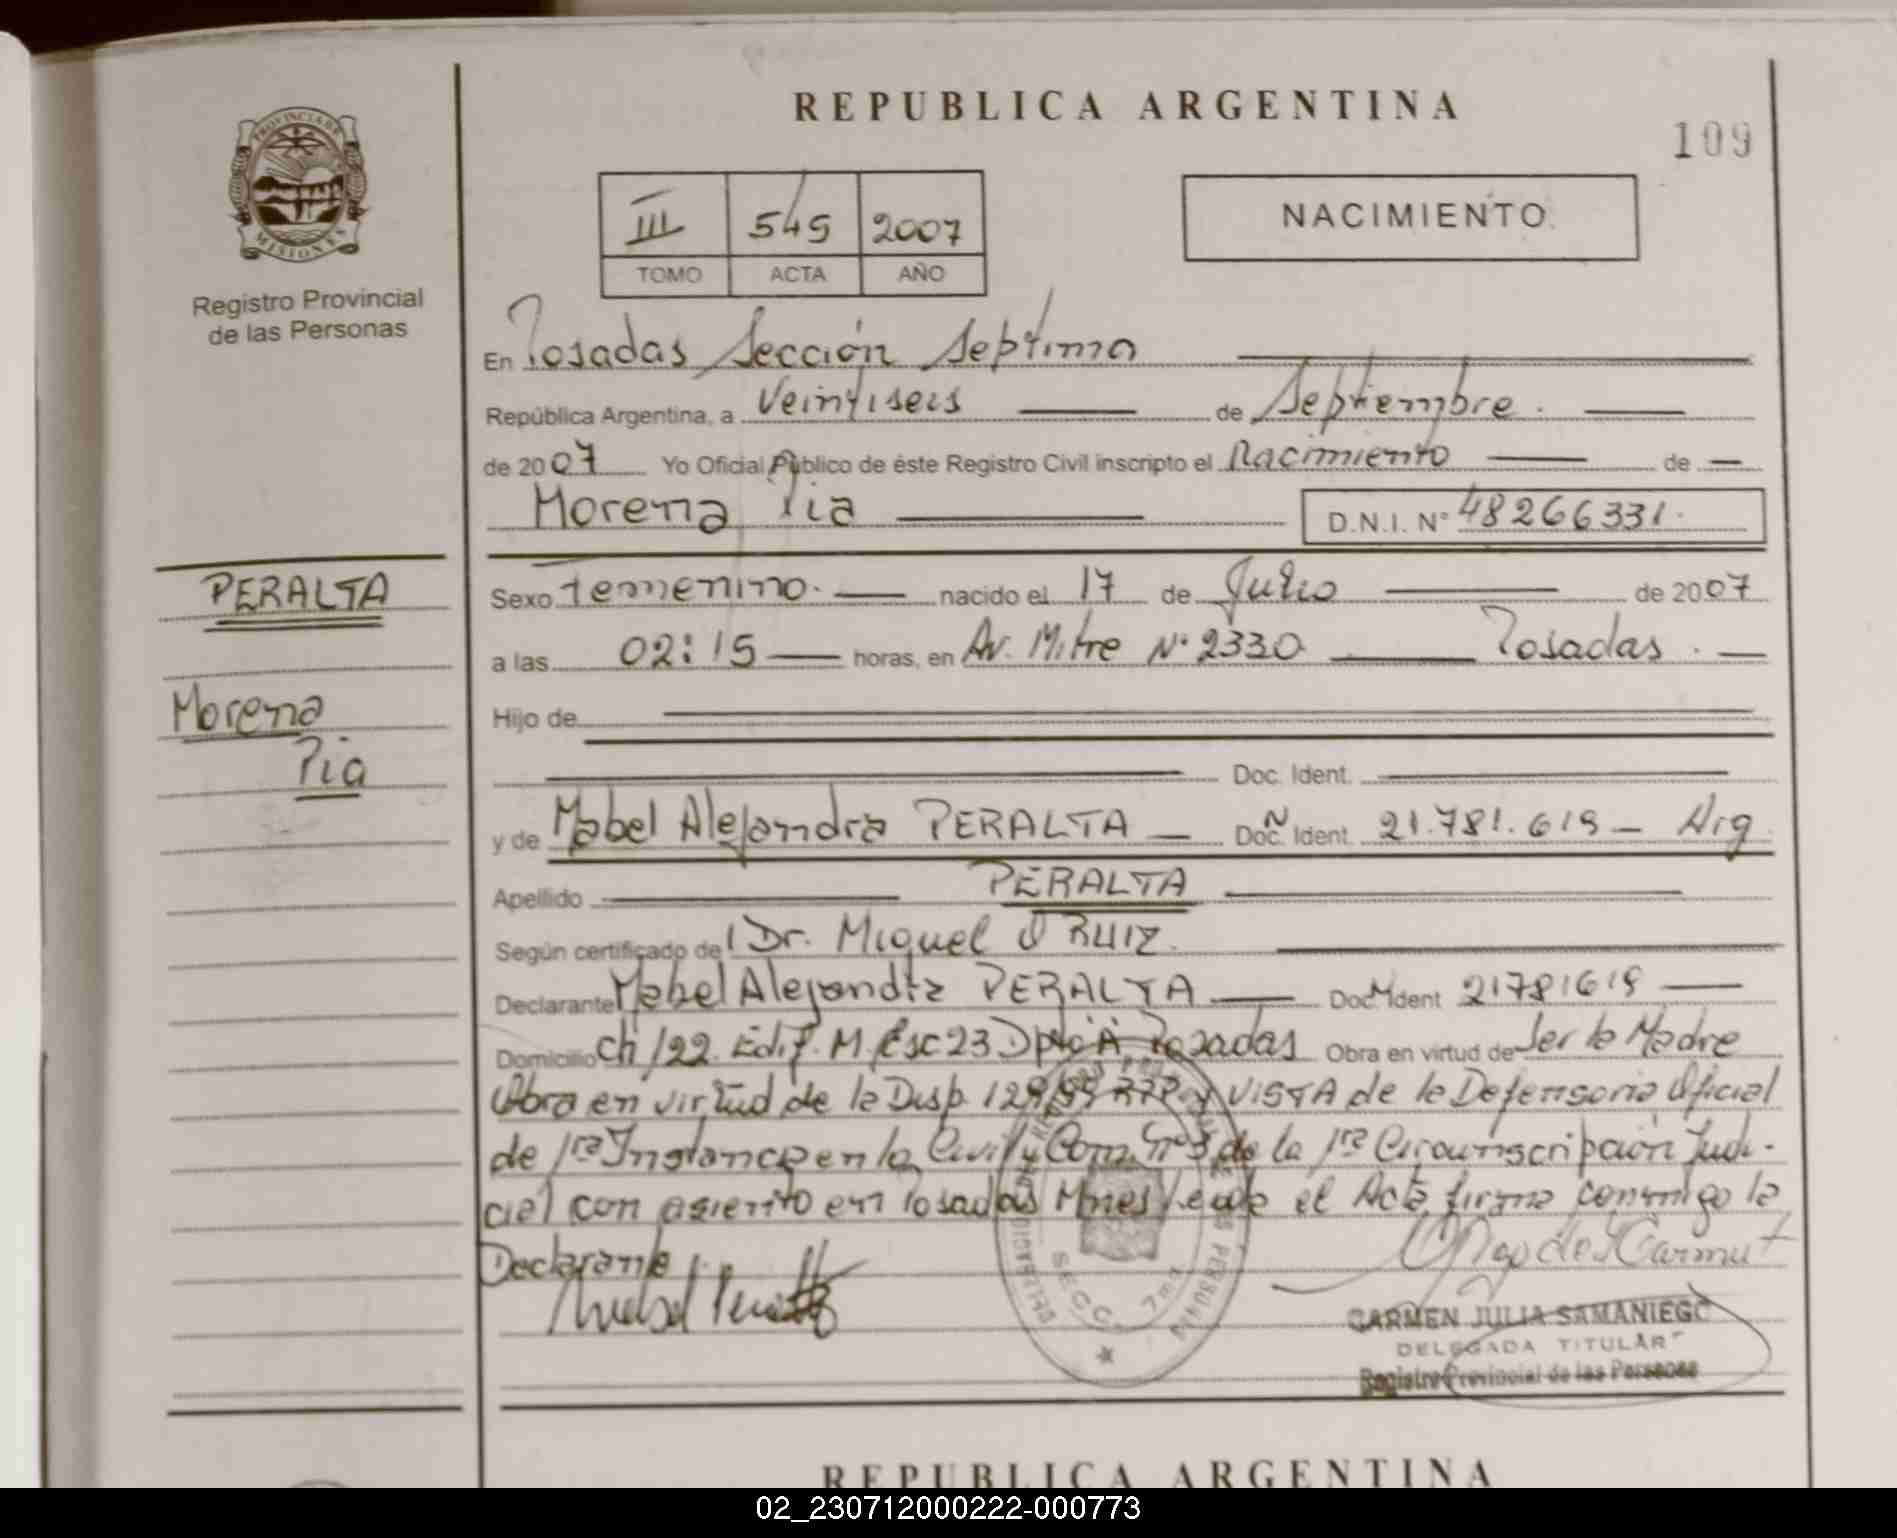 REPUBLICA ARGENTINA
109
PROVINCIA DE
MISIONES
Registro Provincial
de las Personas
III 545 2007
TOMO ACTA AÑO
NACIMIENTO
En Posadas Sección Septima
República Argentina, a Veintiseis de Septiembre.
de 2007 Yo Oficial Público de éste Registro Civil inscripto el Nacimiento de
Morena Pia D.N.I. N° 48266331.
PERALTA
Morena
Pia
Sexo Femenino. nacido el 17 de Julio de 2007
a las 02:15 horas, en Av. Mitre N° 2330 Posadas.
Hijo de
Doc. Ident.
y de Mabel Alejandra PERALTA Doc. Ident. 21.781.619 Arg
Apellido PERALTA
Según certificado de Dr. Miguel O RUIZ.
Declarante Mabel Alejandra PERALTA Doc. Ident 21781619
Domicilio Ch 122. Edif. M. Esc 23 Dpto A Posadas Obra en virtud de Ser la Madre
Obra en virtud de la Disp. y VISTA de la Defensoria Oficial
de 1ra Instancia en lo Civil y Com. N° 3 de la 1ra Circunscripción Judi-
cial con asiento en Posadas Mnes Leida el Acta firma conmigo la
Declarante
SECC. 7ma
CARMEN JULIA SAMANIEGO
DELEGADA TITULAR
Registro Provincial de las Personas
REPUBLICA ARGENTINA
02_230712000222-000773